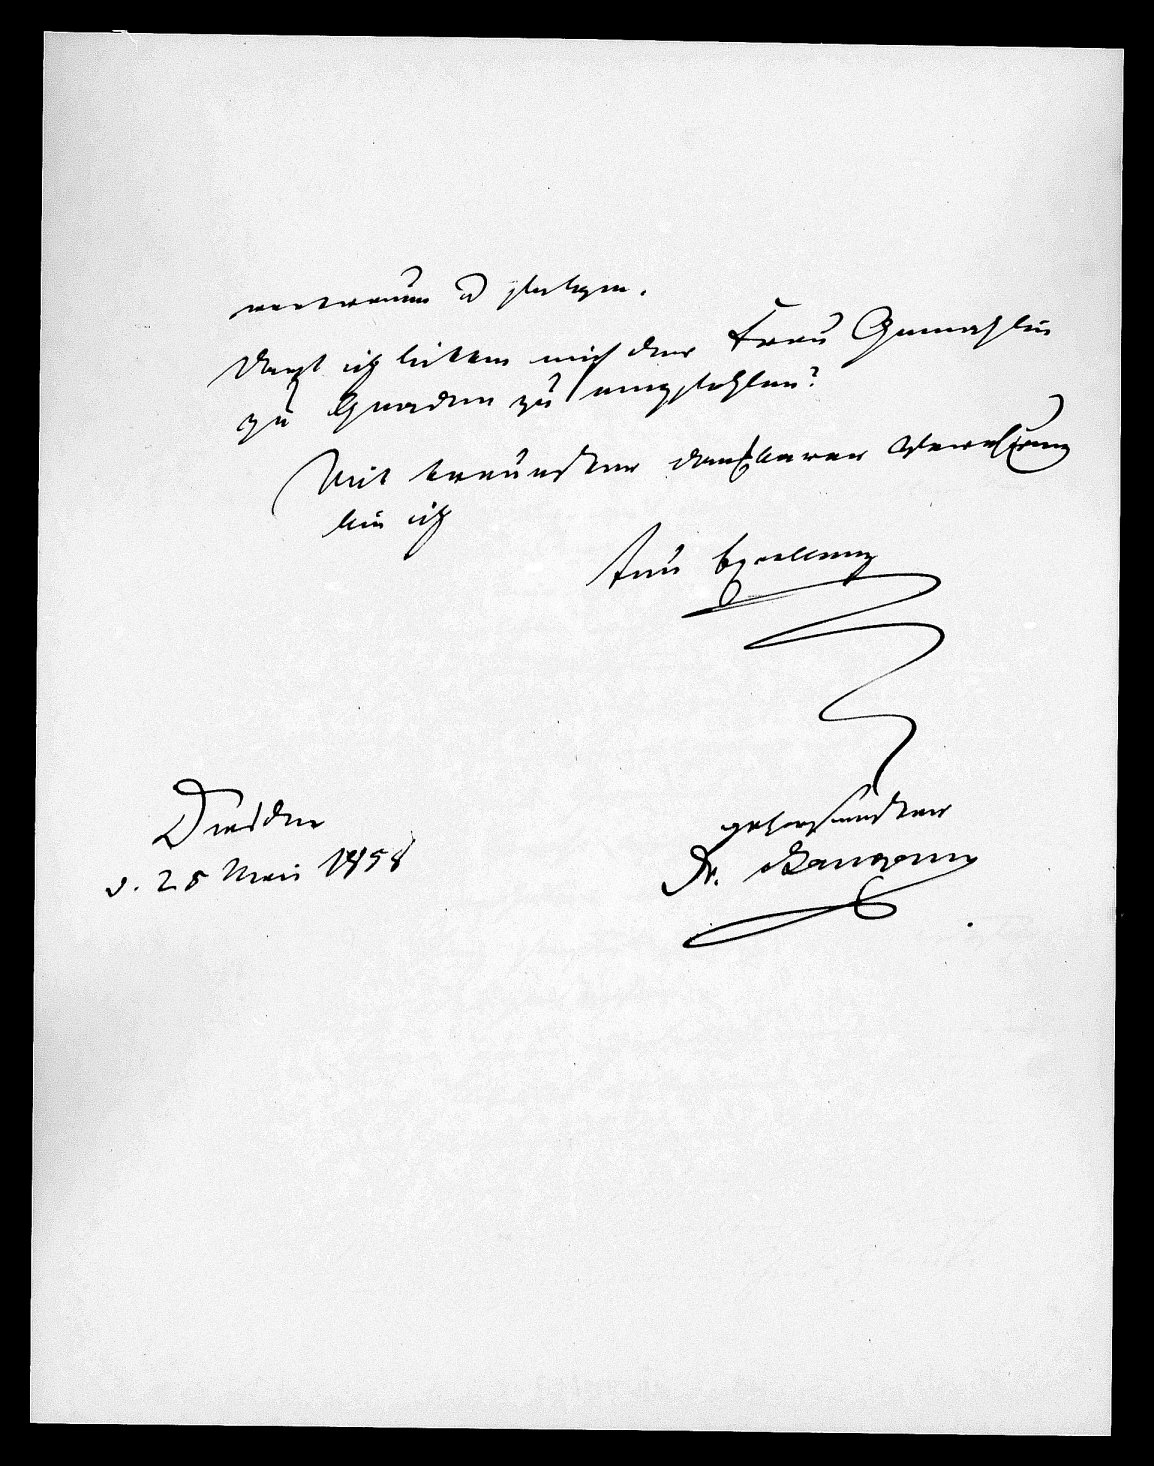 vertrauen u
Darf ich bitten mich der Frau Gemahlin
zu Gnaden zu empfehlen?
Mit treuester dankbarer Verehrung
bin ich
Eur Exzellenz
gehorsamster
Dr.
Dresden
d. 25 Mai 1858